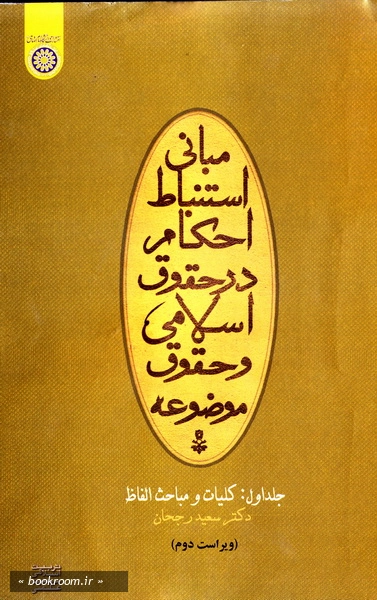 مبانی
استنباط
احکام
در حقوق
اسلامی
و حقوق
موضوعه
جلد اول: کلیات و مباحث الفاظ
دکتر سعید رجحان
(ویراست دوم)
« bookroom.ir »